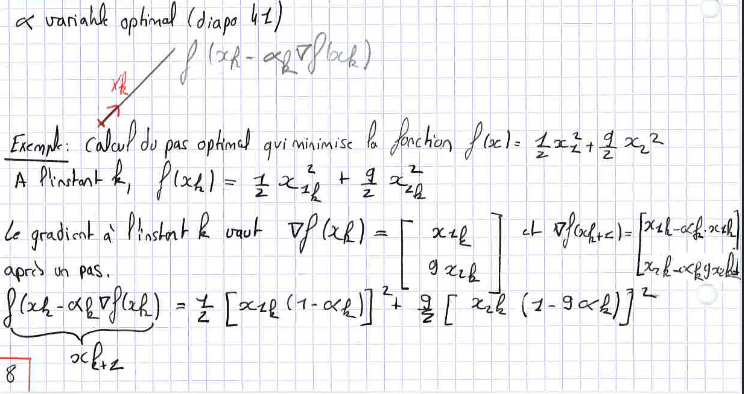 α variable optimal (diapo 41)
f(xk - αk ∇f(xk))
xk
Exemple: Calcul du pas optimal qui minimise la fonction f(x) = 1/2 x₁² + 9/2 x₂²
A l'instant k, f(xk) = 1/2 x₁k² + 9/2 x₂k²
Le gradient à l'instant k vaut ∇f(xk) = [x₁k ; 9x₂k] et ∇f(xk+1) = [x₁k - αk·x₁k ; x₂k - αk 9x₂k]
après un pas.
f(xk - αk ∇f(xk)) = 1/2 [x₁k (1 - αk)]² + 9/2 [x₂k (1 - 9αk)]²
xk+1
8